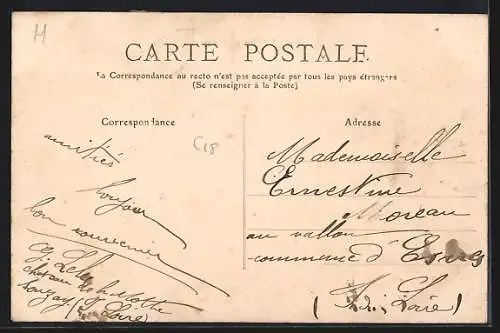 H
CARTE POSTALE
La Correspondance au recto n'est pas acceptée par tous les pays étrangers
(Se renseigner à la Poste)
Correspondance
Adresse
C18
amitiés
bonjour
bon souvenir
chateau de la Mothe
Loire)
Mademoiselle
Ernestine
Moreau
au vallon
commune d'Esvres
(I. et Loire)